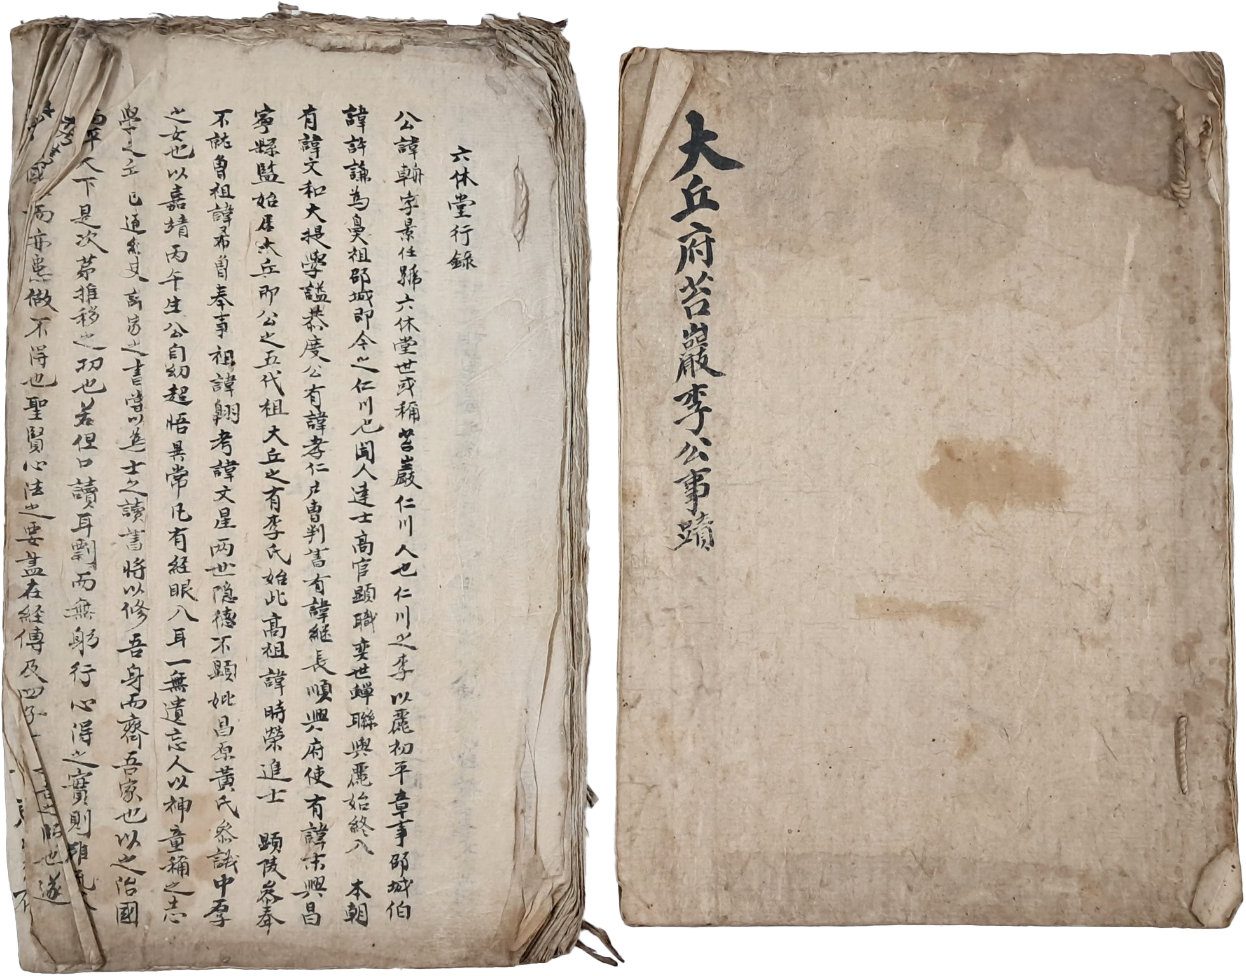 大丘府苔巖李公事蹟
六休堂行錄
公諱輈字景任號六休堂世或稱苔巖仁川人也仁川之李以麗初平章事邵城伯
諱許謙為鼻祖邵城即今之仁川也聞人達士高官顯職奕世蟬聯與麗始終入 本朝
有諱文和大提學諡恭度公有諱孝仁戶曹判書有諱継長順興府使有諱末興昌
寧縣監始居大丘即公之五代祖大丘之有李氏始此高祖諱時榮進士 顯陵參奉
不就曾祖諱希曾奉事祖諱翱考諱文星两世隐德不顯妣昌原黃氏參議中孚
之女也以嘉靖丙午生公自幼超悟異常凡有経眼入耳一無遺忘人以神童稱之志
學之 已通 史 家之書嘗以為士之讀書將以修吾身而齊吾家也以之治國
平天下是次第推移之功也若但口讀耳剽而無躬行心得之實則雖
國 而亦愚做不得也聖賢心法之要盡在経傳及四子 也遂